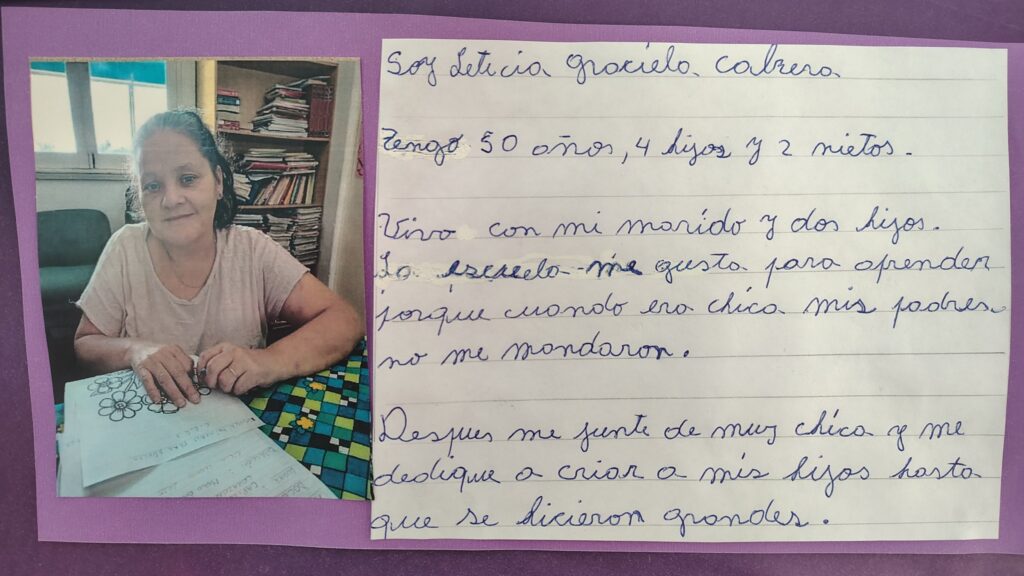 Soy Leticia Graciela Cabrera
Tengo 50 años, 4 hijos y 2 nietos.
Vivo con mi marido y dos hijos.
La escuela me gusta para aprender
porque cuando era chica mis padres
no me mandaron.
Despues me junte de muy chica y me
dedique a criar a mis hijos hasta
que se hicieron grandes.